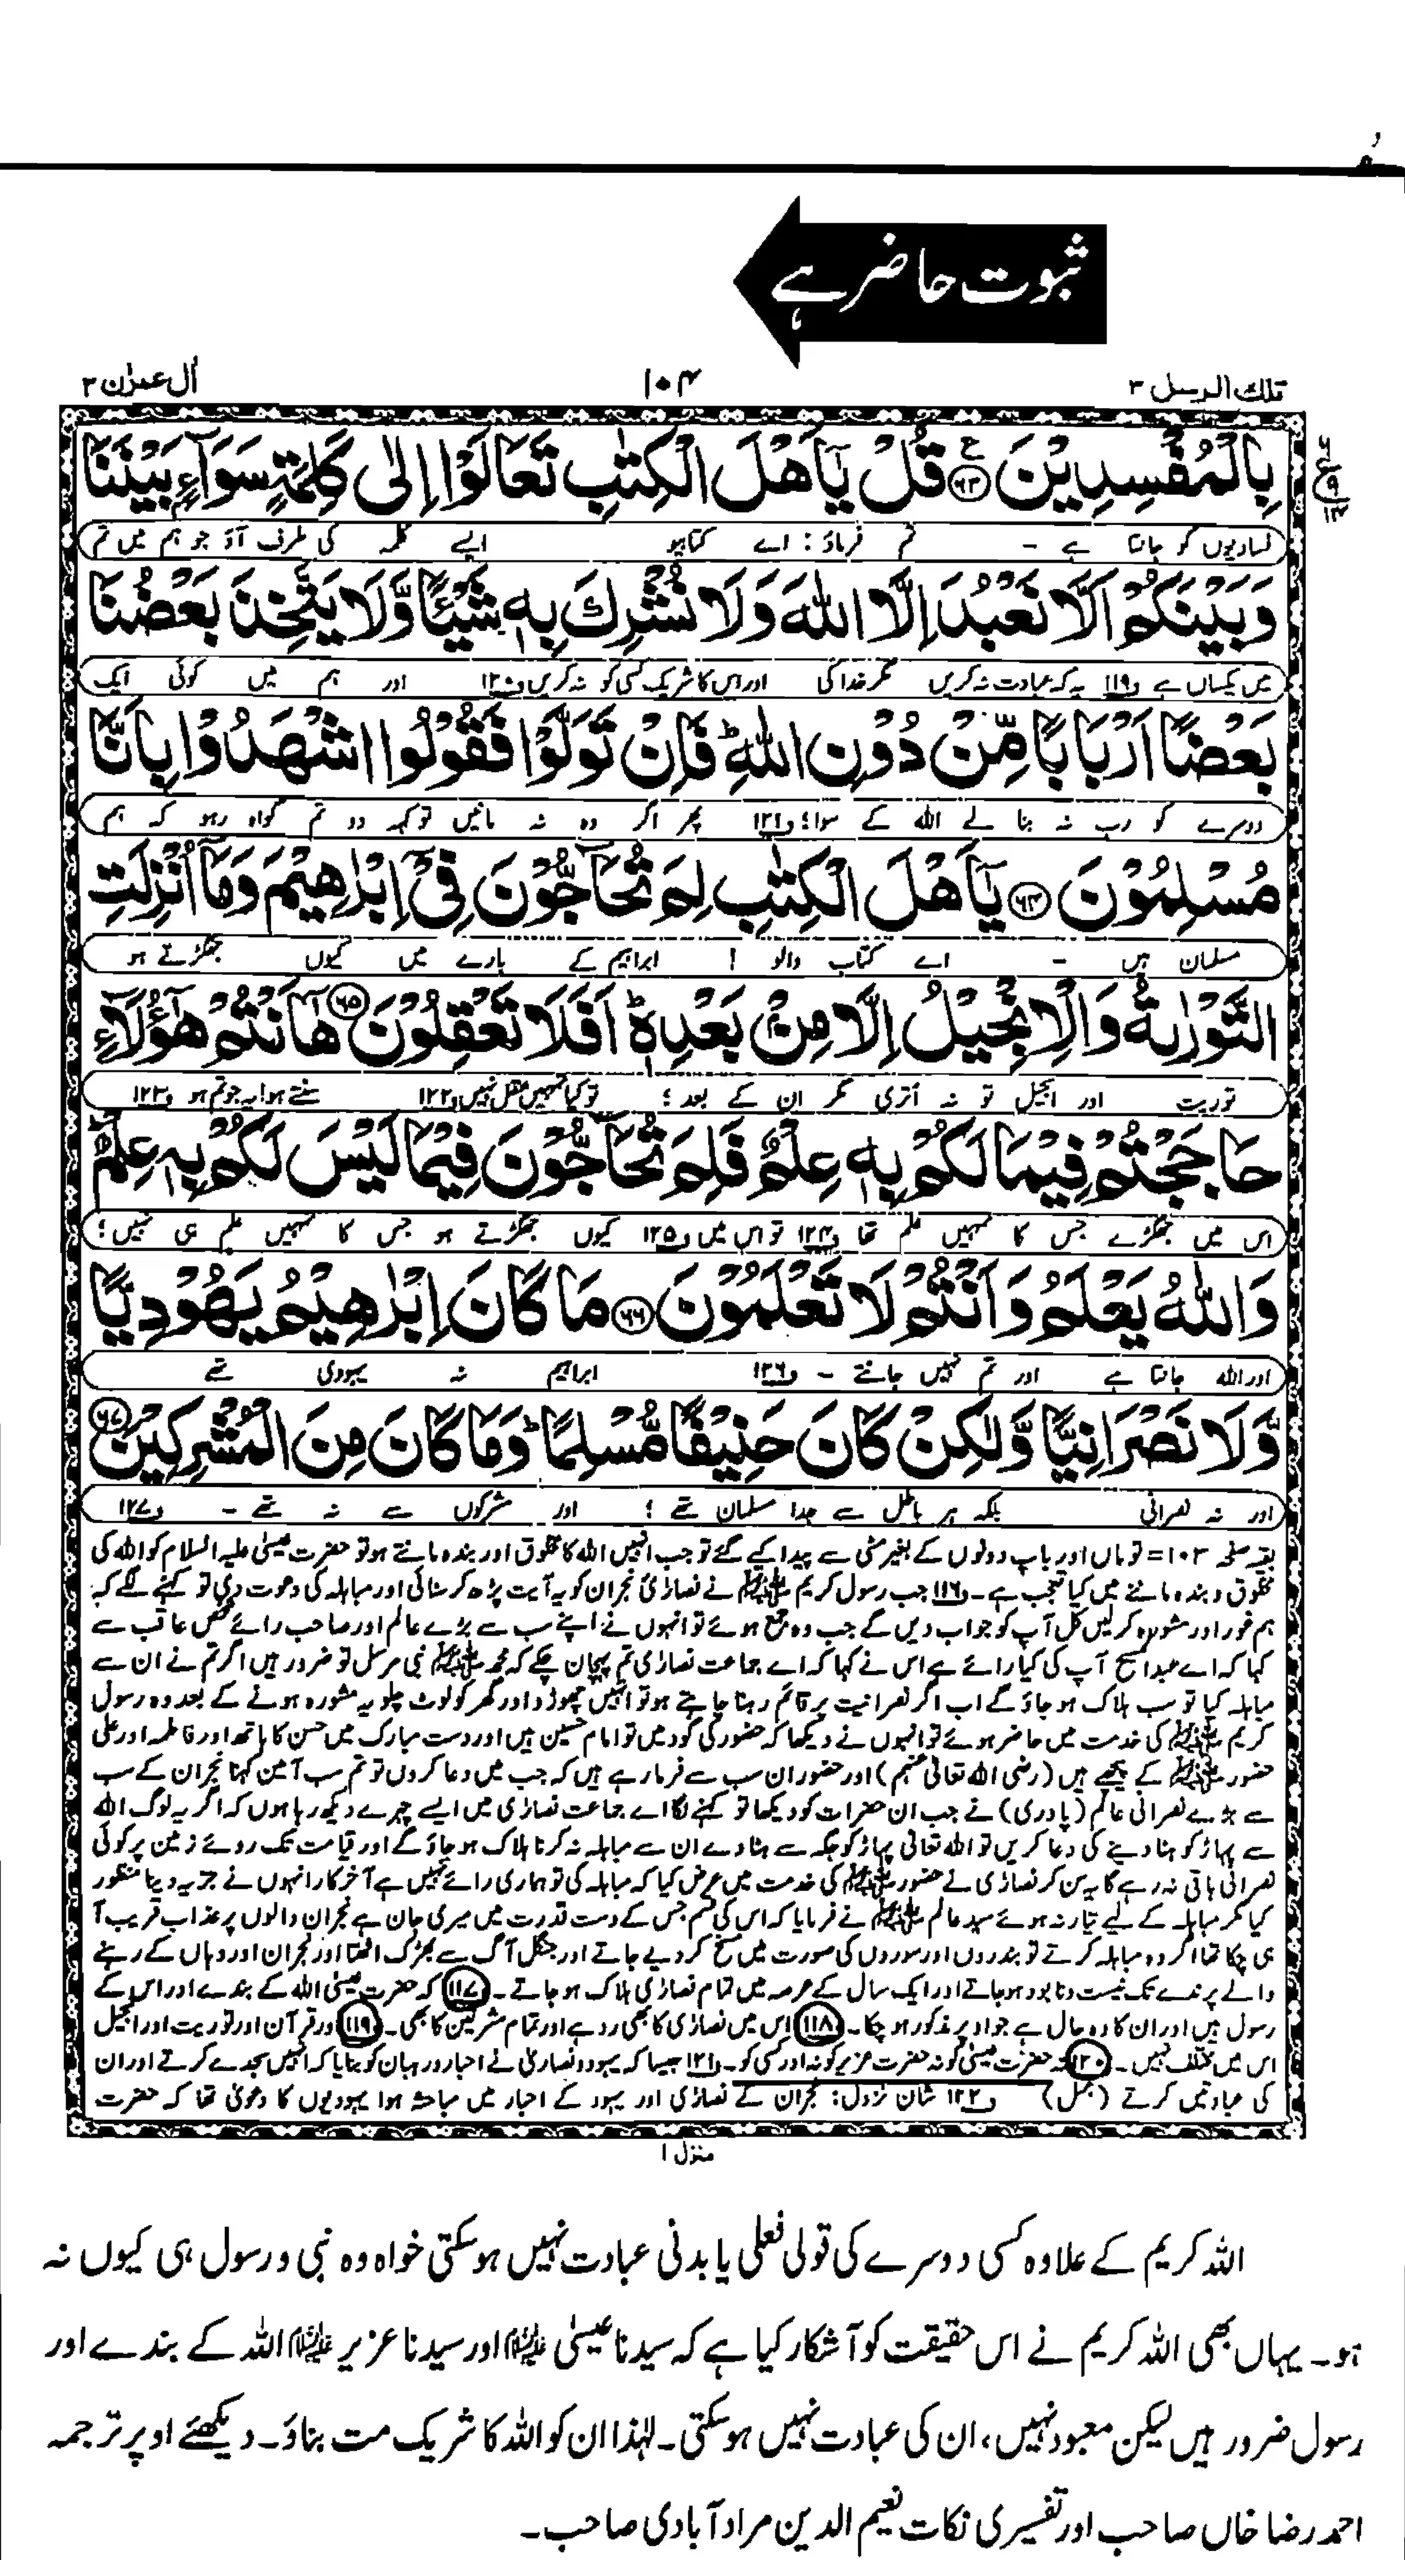 ثبوت حاضر ہے
تلك الرسل ۳
۱۰۴
اٰل عمرٰن ۳
بِالْمُفْسِدِيْنَ ۶۳ قُلْ يٰۤاَهْلَ الْكِتٰبِ تَعَالَوْا اِلٰى كَلِمَةٍ سَوَآءٍۢ بَيْنَنَا
فسادیوں کو جانتا ہے ۔ تم فرماؤ: اے کتابیو ایسے کلمہ کی طرف آؤ جو ہم میں تم
وَبَيْنَكُمْ اَلَّا نَعْبُدَ اِلَّا اللّٰهَ وَلَا نُشْرِكَ بِهٖ شَيْـًٔا وَّلَا يَتَّخِذَ بَعْضُنَا
میں یکساں ہے و۱۱۹ یہ کہ عبادت نہ کریں مگر خدا کی اور اس کا شریک کسی کو نہ کریں و۱۲۰ اور ہم میں کوئی ایک
بَعْضًا اَرْبَابًا مِّنْ دُوْنِ اللّٰهِ ؕ فَاِنْ تَوَلَّوْا فَقُوْلُوا اشْهَدُوْا بِاَنَّا
دوسرے کو رب نہ بنا لے اللہ کے سوا؛ و۱۲۱ پھر اگر وہ نہ مانیں تو کہہ دو تم گواہ رہو کہ ہم
مُسْلِمُوْنَ ۶۴ يٰۤاَهْلَ الْكِتٰبِ لِمَ تُحَآجُّوْنَ فِىْۤ اِبْرٰهِيْمَ وَمَاۤ اُنْزِلَتِ
مسلمان ہیں ۔ اے کتاب والو ! ابراہیم کے بارے میں کیوں جھگڑتے ہو
التَّوْرٰىةُ وَالْاِنْجِيْلُ اِلَّا مِنْۢ بَعْدِهٖ ؕ اَفَلَا تَعْقِلُوْنَ ۶۵ هٰۤاَنْتُمْ هٰۤؤُلَآءِ
توریت اور انجیل تو نہ اُتری مگر ان کے بعد؛ تو کیا تمہیں عقل نہیں و۱۲۲ سنتے ہو! یہ جو تم ہو و۱۲۳
حَاجَجْتُمْ فِيْمَا لَكُمْ بِهٖ عِلْمٌ فَلِمَ تُحَآجُّوْنَ فِيْمَا لَيْسَ لَكُمْ بِهٖ عِلْمٌ ؕ
اس میں جھگڑے جس کا تمہیں علم تھا و۱۲۴ تو اس میں و۱۲۵ کیوں جھگڑتے ہو جس کا تمہیں علم ہی نہیں؛
وَاللّٰهُ يَعْلَمُ وَاَنْتُمْ لَا تَعْلَمُوْنَ ۶۶ مَا كَانَ اِبْرٰهِيْمُ يَهُوْدِيًّا
اور اللہ جانتا ہے اور تم نہیں جانتے ۔ و۱۲۶ ابراہیم نہ یہودی تھے
وَّلَا نَصْرَانِيًّا وَّلٰكِنْ كَانَ حَنِيْفًا مُّسْلِمًا ؕ وَمَا كَانَ مِنَ الْمُشْرِكِيْنَ ۶۷
اور نہ نصرانی بلکہ ہر باطل سے جدا مسلمان تھے ؛ اور مشرکوں سے نہ تھے ۔ و۱۲۷
بقیہ صفحہ ۱۰۳= تو ماں اور باپ دونوں کے بغیر مٹی سے پیدا کیے گئے تو جب انہیں اللہ کا مخلوق اور بندہ مانتے ہو تو حضرت عیسیٰ علیہ السلام کو اللہ کی
مخلوق و بندہ ماننے میں کیا تعجب ہے۔ و۱۱۶ جب رسول کریم ﷺ نے نصارٰی نجران کو یہ آیت پڑھ کر سنائی اور مباہلہ کی دعوت دی تو کہنے لگے کہ
ہم غور اور مشورہ کرلیں کل آپ کو جواب دیں گے جب وہ جمع ہوئے تو انہوں نے اپنے سب سے بڑے عالم اور صاحب رائے شخص عاقب سے
کہا کہ اے عبد المسیح آپ کی کیا رائے ہے اس نے کہا کہ اے جماعت نصارٰی تم پہچان چکے کہ محمد ﷺ نبی مرسل تو ضرور ہیں اگر تم نے ان سے
مباہلہ کیا تو سب ہلاک ہو جاؤ گے اب اگر نصرانیت پر قائم رہنا چاہتے ہو تو انہیں چھوڑ دو اور گھر کو لوٹ چلو یہ مشورہ ہونے کے بعد وہ رسول
کریم ﷺ کی خدمت میں حاضر ہوئے تو انہوں نے دیکھا کہ حضور کی گود میں تو امام حسین ہیں اور دست مبارک میں حسن کا ہاتھ اور فاطمہ اور علی
حضور ﷺ کے پیچھے ہیں (رضی اللہ تعالیٰ عنہم) اور حضور ان سب سے فرما رہے ہیں کہ جب میں دعا کروں تو تم سب آمین کہنا نجران کے سب
سے بڑے نصرانی عالم (پادری) نے جب ان حضرات کو دیکھا تو کہنے لگا اے جماعت نصارٰی میں ایسے چہرے دیکھ رہا ہوں کہ اگر یہ لوگ اللہ
سے پہاڑ کو ہٹا دینے کی دعا کریں تو اللہ تعالیٰ پہاڑ کو جگہ سے ہٹا دے ان سے مباہلہ نہ کرنا ہلاک ہو جاؤ گے اور قیامت تک روئے زمین پر کوئی
نصرانی باقی نہ رہے گا یہ سن کر نصارٰی نے حضور ﷺ کی خدمت میں عرض کیا کہ مباہلہ کی تو ہماری رائے نہیں ہے آخر کار انہوں نے جزیہ دینا منظور
کیا مگر مباہلہ کے لیے تیار نہ ہوئے سید عالم ﷺ نے فرمایا کہ اس کی قسم جس کے دست قدرت میں میری جان ہے نجران والوں پر عذاب قریب آ
ہی چکا تھا اگر وہ مباہلہ کرتے تو بندروں اور سوروں کی صورت میں مسخ کر دیے جاتے اور جنگل آگ سے بھڑک اٹھتا اور نجران اور وہاں کے رہنے
والے پرندے تک نیست و نابود ہو جاتے اور ایک سال کے عرصہ میں تمام نصارٰی ہلاک ہو جاتے۔ ۱۱۷ کہ حضرت عیسیٰ اللہ کے بندے اور اس کے
رسول ہیں اور ان کا وہ حال ہے جو اوپر مذکور ہو چکا۔ ۱۱۸ اس میں نصارٰی کا بھی رد ہے اور تمام مشرکین کا بھی۔ ۱۱۹ اور قرآن اور توریت اور انجیل
اس میں مختلف نہیں۔ ۱۲۰ نہ حضرت عیسیٰ کو نہ حضرت عزیر کو نہ اور کسی کو۔ و۱۲۱ جیسا کہ یہود و نصاریٰ نے احبار و رہبان کو بنایا کہ انہیں سجدے کرتے اور ان
کی عبادتیں کرتے (جمل) و۱۲۲ شان نزول: نجران کے نصارٰی اور یہود کے احبار میں مباحثہ ہوا یہودیوں کا دعویٰ تھا کہ حضرت
منزل ۱
اللہ کریم کے علاوہ کسی دوسرے کی قولی فعلی یا بدنی عبادت نہیں ہو سکتی خواہ وہ نبی و رسول ہی کیوں نہ
ہو۔ یہاں بھی اللہ کریم نے اس حقیقت کو آشکار کیا ہے کہ سیدنا عیسیٰ علیہ السلام اور سیدنا عزیر علیہ السلام اللہ کے بندے اور
رسول ضرور ہیں لیکن معبود نہیں، ان کی عبادت نہیں ہو سکتی۔ لہٰذا ان کو اللہ کا شریک مت بناؤ۔ دیکھئے اوپر ترجمہ
احمد رضا خاں صاحب اور تفسیری نکات نعیم الدین مراد آبادی صاحب۔